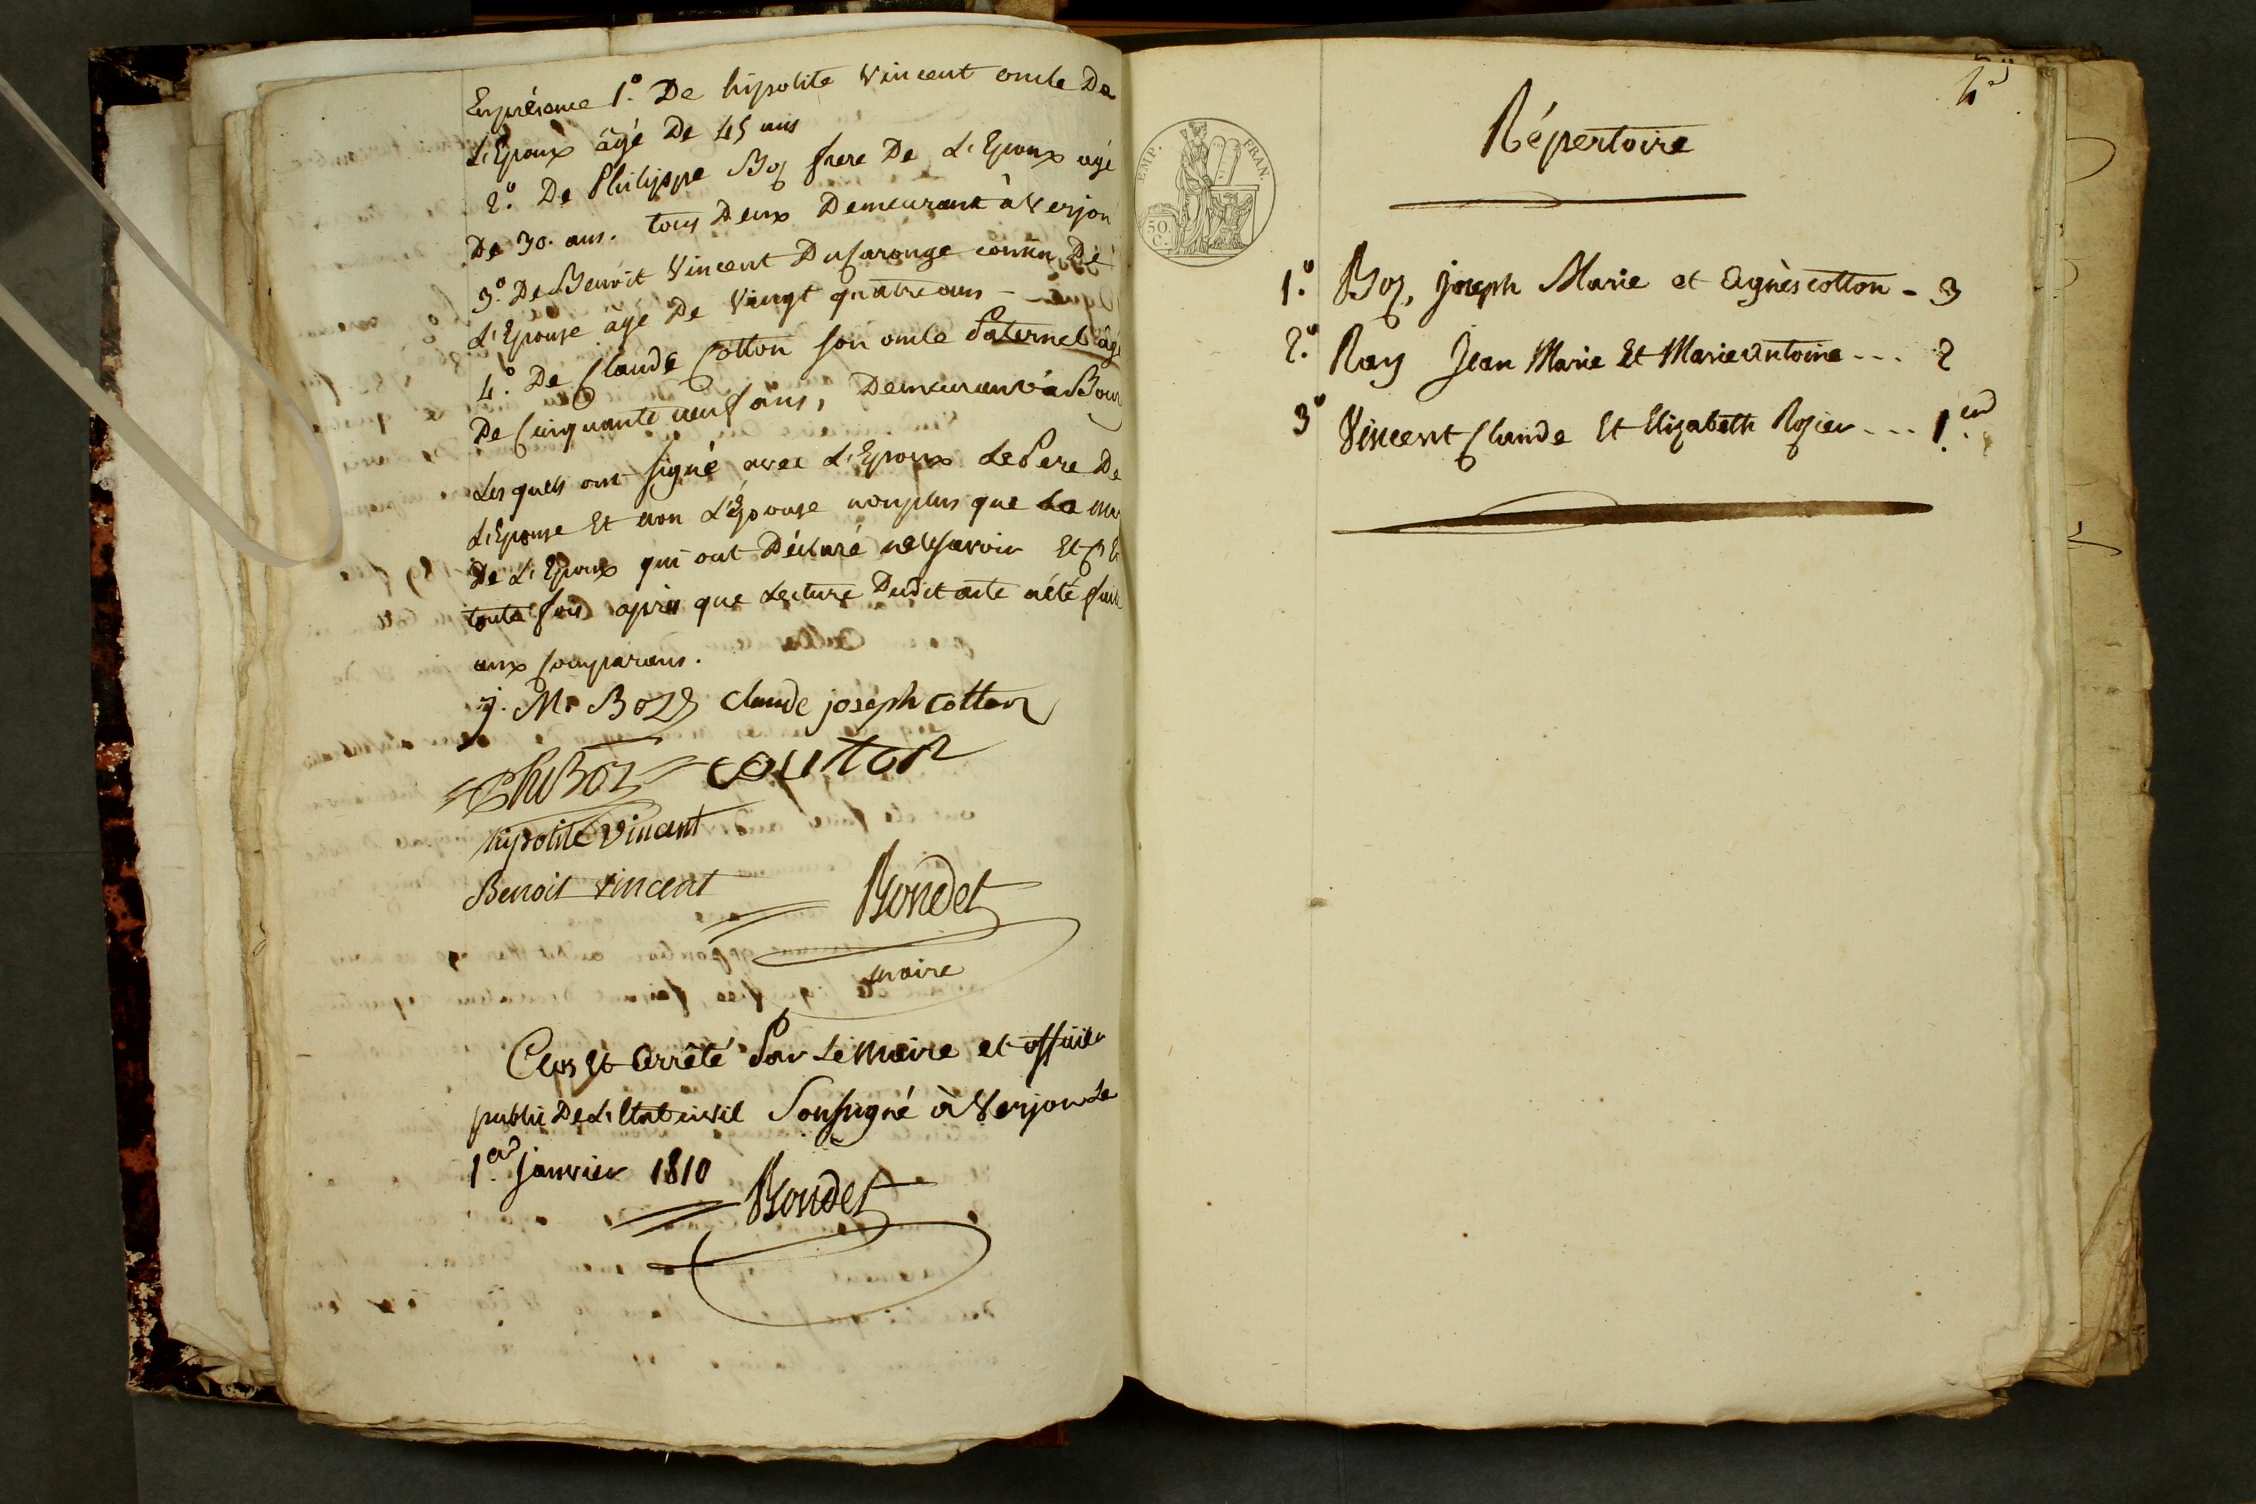 En présence 1.º De hipolite Vincent oncle De
L'Epoux âgé De 45 ans
2.º De Philippe Boz frere De L'Epoux agé
De 30. ans. tous Deux Demeurant à Verjon
3.º De Benoit Vincent Du farouge cousin De
L'Epouse agé De Vingt quatre ans -
4.º De Claude Cotton son oncle Paternel âgé
De Cinquante neuf ans, Demeurant à
Les quels ont signé avec L'Epoux Le Pere De
L'Epouse Et non L'Epouse non plus que La
De L'Epoux qui ont Déclaré ne le savoir Et
toute fois après que Lecture Dudit acte a été fait
aux Comparans.
j. M. Boz Claude joseph cotton
Ph Boz couton
hipolite vincent
Benoit vincent
Bondet
maire
Clos Et Arrêté Par Le Maire et officier
public De L'Etat civil Soussigné à Verjon Le
1.er Janvier 1810
Bondet
4e
Répertoire
EMP. FRAN.
50.
C.
1.º Boz, joseph Marie et Agnès cotton - 3
2.º Ray Jean Marie Et Marie Antoine --- 2
3º Vincent Claude Et Elizabeth Rozier --- 1.er